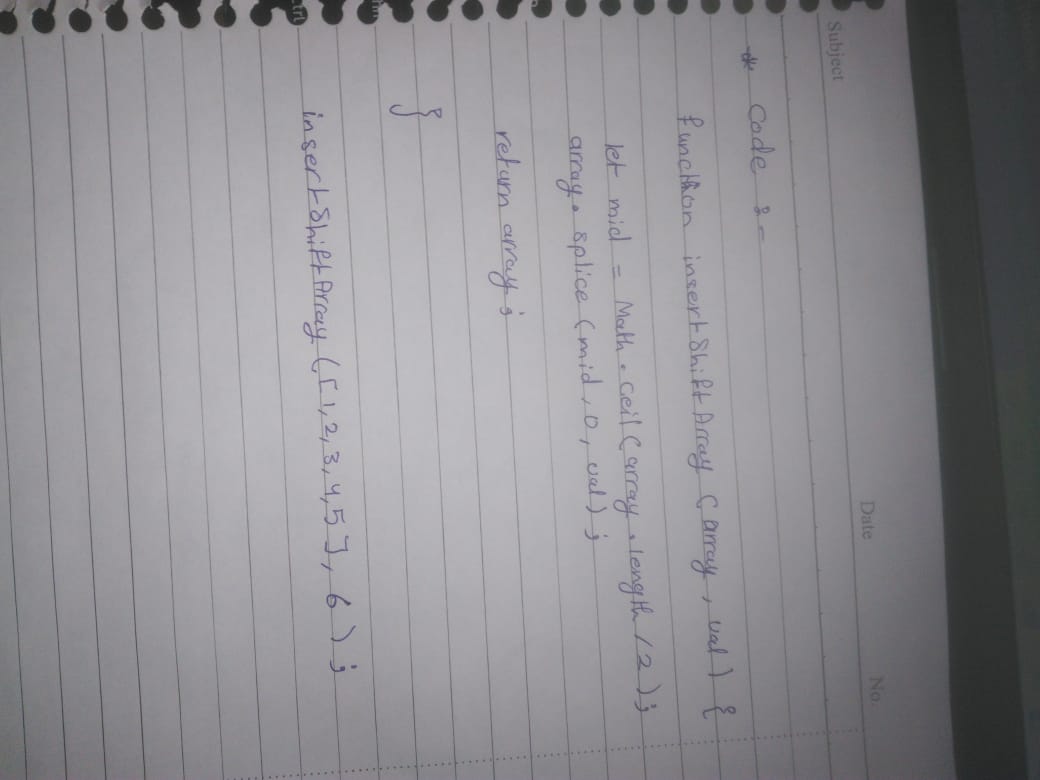 Subject
Date
No.
* Code :-
function insertShiftArray (array, val) {
let mid = Math.ceil(array.length/2);
array.splice(mid, 0, val);
return array;
}
insertShiftArray([1,2,3,4,5], 6);